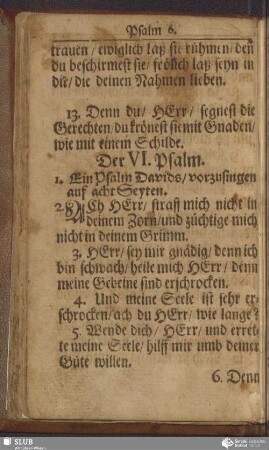 Psalm 6.
trauen / ewiglich laß sie rühmen / deñ
du beschirmest sie / frölich laß seyn in
dir / die deinen Nahmen lieben.
13. Denn du / HErr / segnest die
Gerechten / du krönest sie mit Gnaden /
wie mit einem Schilde.
Der VI. Psalm.
1. Ein Psalm Davids / vorzusingen
auf acht Seyten.
2. ACh HErr / straff mich nicht in
deinem Zorn / und züchtige mich
nicht in deinem Grimm.
3. HErr / sey mir gnädig / denn ich
bin schwach / heile mich HErr / denn
meine Gebeine sind erschrocken.
4. Und meine Seele ist sehr er-
schrocken / ach du HErr / wie lange?
5. Wende dich / HErr / und erret-
te meine Seele / hilff mir umb deiner
Güte willen.
6. Denn
SLUB